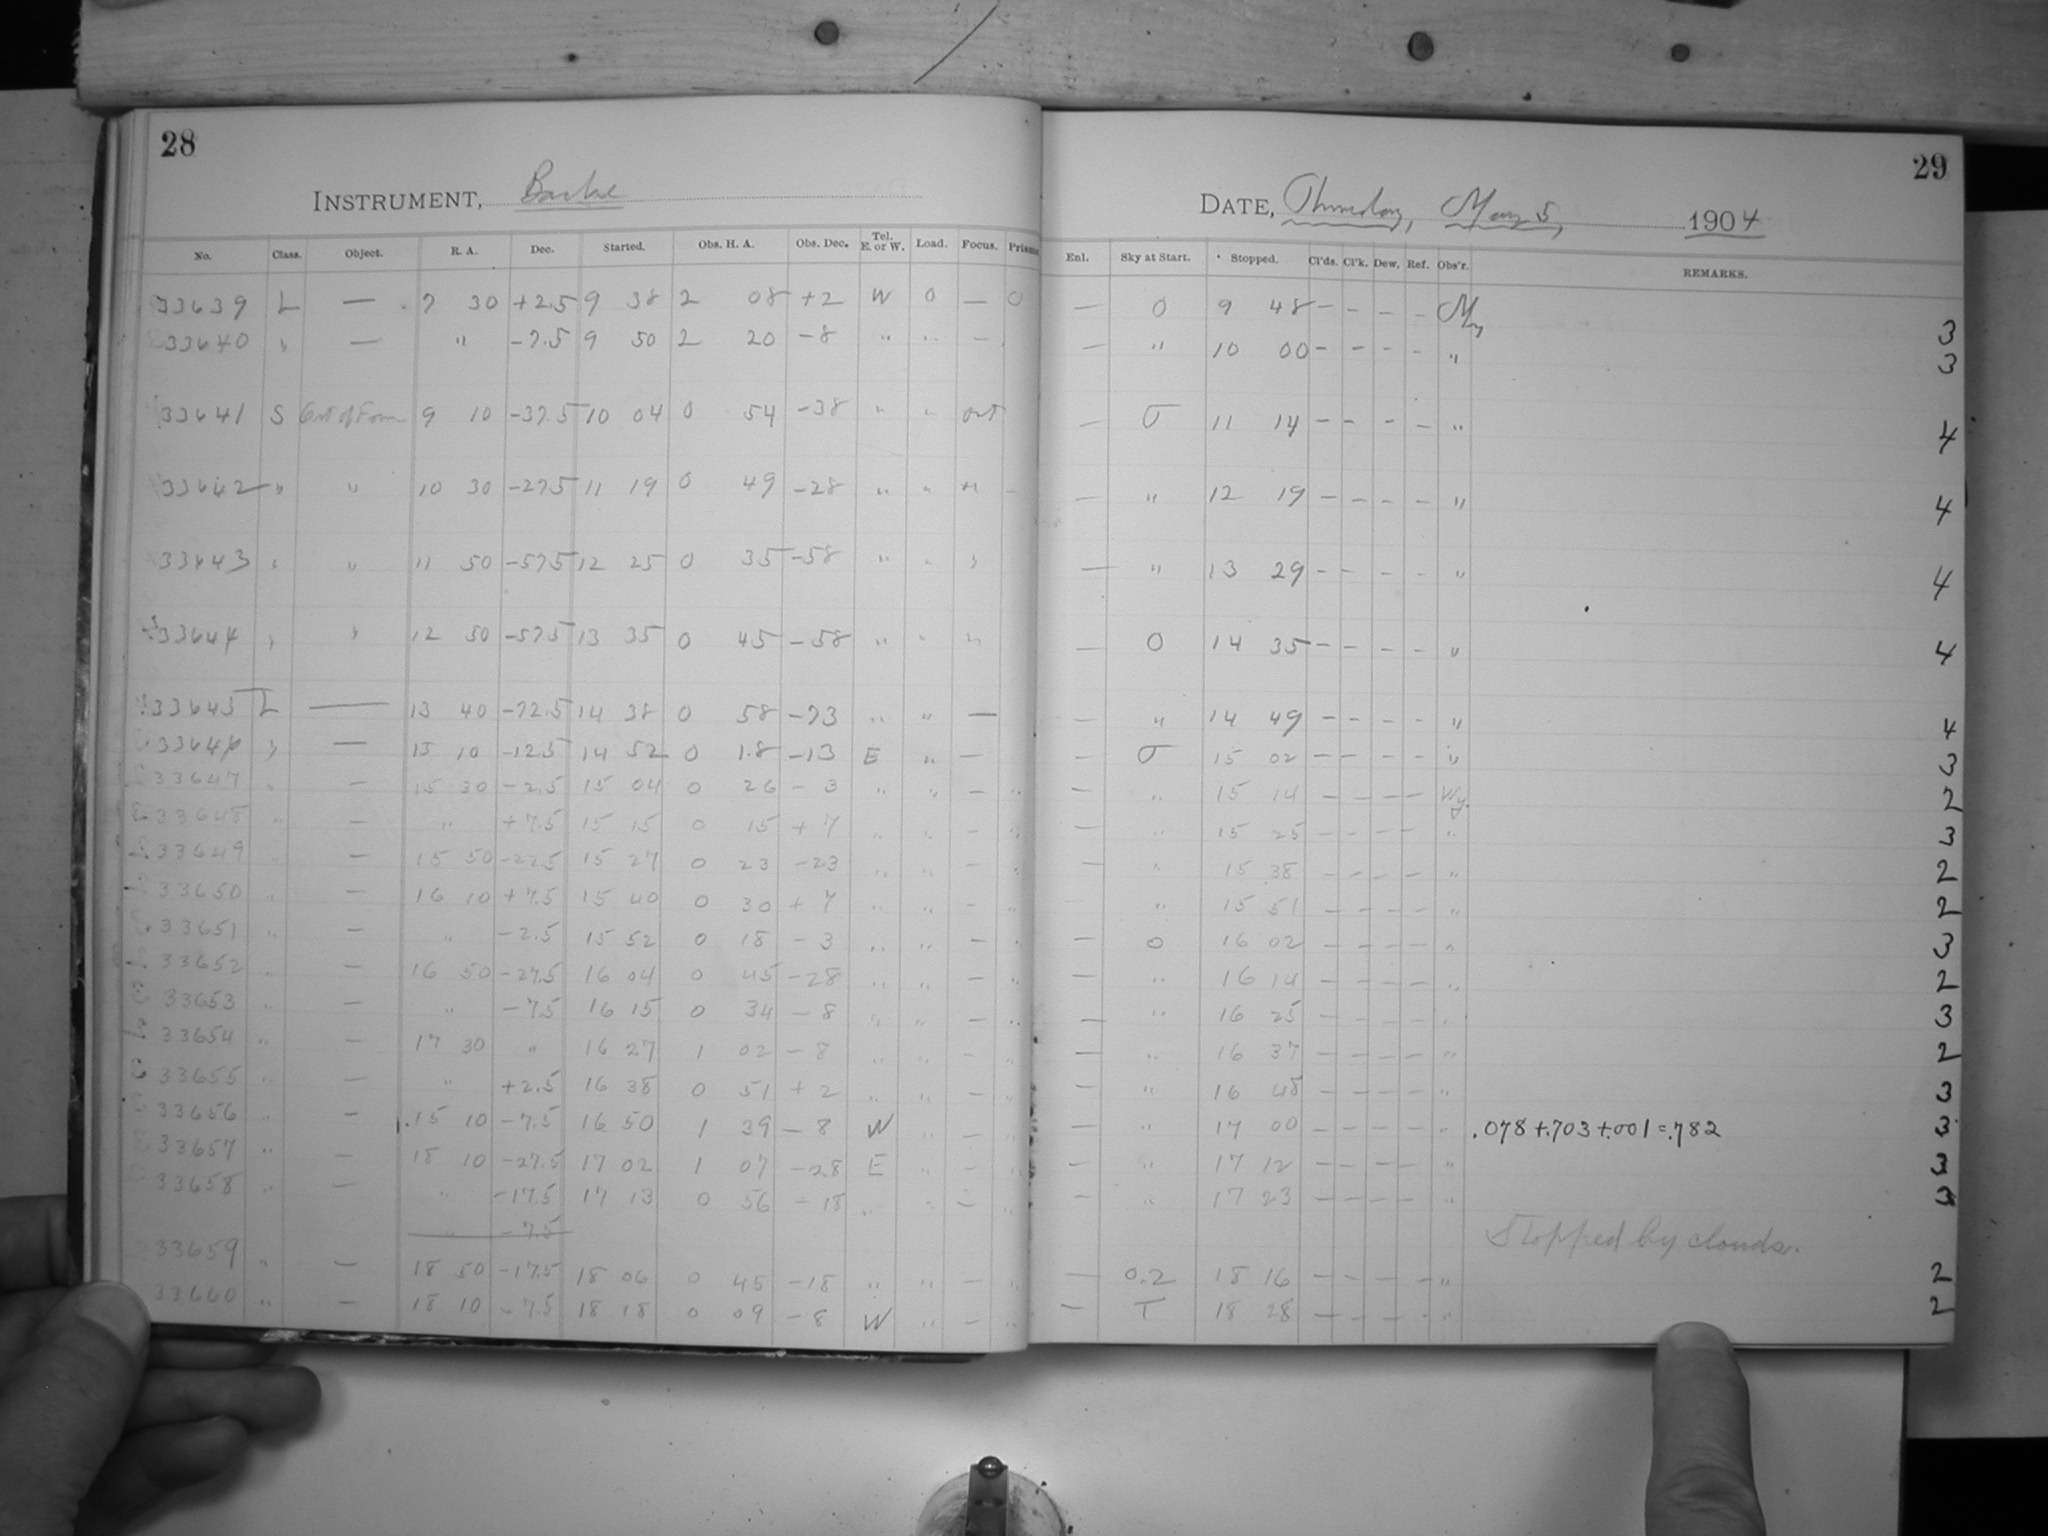 28
INSTRUMENT, Bache
No. Class. Object. R. A. Dec. Started. Obs. H. A. Obs. Dec. Tel. E. or W. Load. Focus. Prisms
33639 L — 7 30 +2.5 9 38 2 08 +2 W 0 — 0
33640 " — " -7.5 9 50 2 20 -8 " " —
33641 S Out of Focus 9 10 -37.5 10 04 0 54 -38 " " out
33642 " " 10 30 -27.5 11 19 0 49 -28 " " " -
33643 " " 11 50 -57.5 12 25 0 35 -58 " " "
33644 " " 12 50 -57.5 13 35 0 45 -58 " " "
33645 L — 13 40 -72.5 14 38 0 58 -73 " " —
33646 " — 15 10 -12.5 14 52 0 18 -13 E " —
33647 " — 15 30 -2.5 15 04 0 26 -3 " " — "
33648 " — " +7.5 15 15 0 15 +7 " " — "
33649 " — 15 50 -22.5 15 27 0 23 -23 " " — "
33650 " — 16 10 +7.5 15 40 0 30 +7 " " — "
33651 " — " -2.5 15 52 0 18 -3 " " — "
33652 " — 16 50 -27.5 16 04 0 45 -28 " " — "
33653 " — " -7.5 16 15 0 34 -8 " " — "
33654 " — 17 30 " 16 27 1 02 -8 " " — "
33655 " — " +2.5 16 38 0 51 +2 " " — "
33656 " — 15 10 -7.5 16 50 1 39 -8 W " — "
33657 " — 18 10 -27.5 17 02 1 07 -28 E " — "
33658 " — " -17.5 17 13 0 56 -18 " " — "
" -7.5
33659 " — 18 50 -17.5 18 06 0 45 -18 " " — "
33660 " — 18 10 -7.5 18 18 0 09 -8 W " — "
29
DATE, Thursday, May 5, 1904
Enl. Sky at Start. Stopped. Cl'ds. Cl'k. Dew. Ref. Obs'r. REMARKS.
— 0 9 48 — — — — My 3
— " 10 00 — — — — " 3
— 11 14 — — — — " 4
— " 12 19 — — — — " 4
— " 13 29 — — — — " 4
— 0 14 35 — — — — " 4
— " 14 49 — — — — " 4
— 15 02 — — — — " 3
— " 15 14 — — — — Wy. 2
— " 15 25 — — — — " 3
— " 15 38 — — — — " 2
— " 15 51 — — — — " 2
— 0 16 02 — — — — " 3
— " 16 14 — — — — " 2
— " 16 25 — — — — " 3
— " 16 37 — — — — " 2
— " 16 48 — — — — " 3
— " 17 00 — — — — " .078+.703+.001=.782 3
— " 17 12 — — — — " 3
— " 17 23 — — — — " 3
Stopped by clouds.
— 0.2 18 16 — — — — " 2
— T 18 28 — — — — " 2